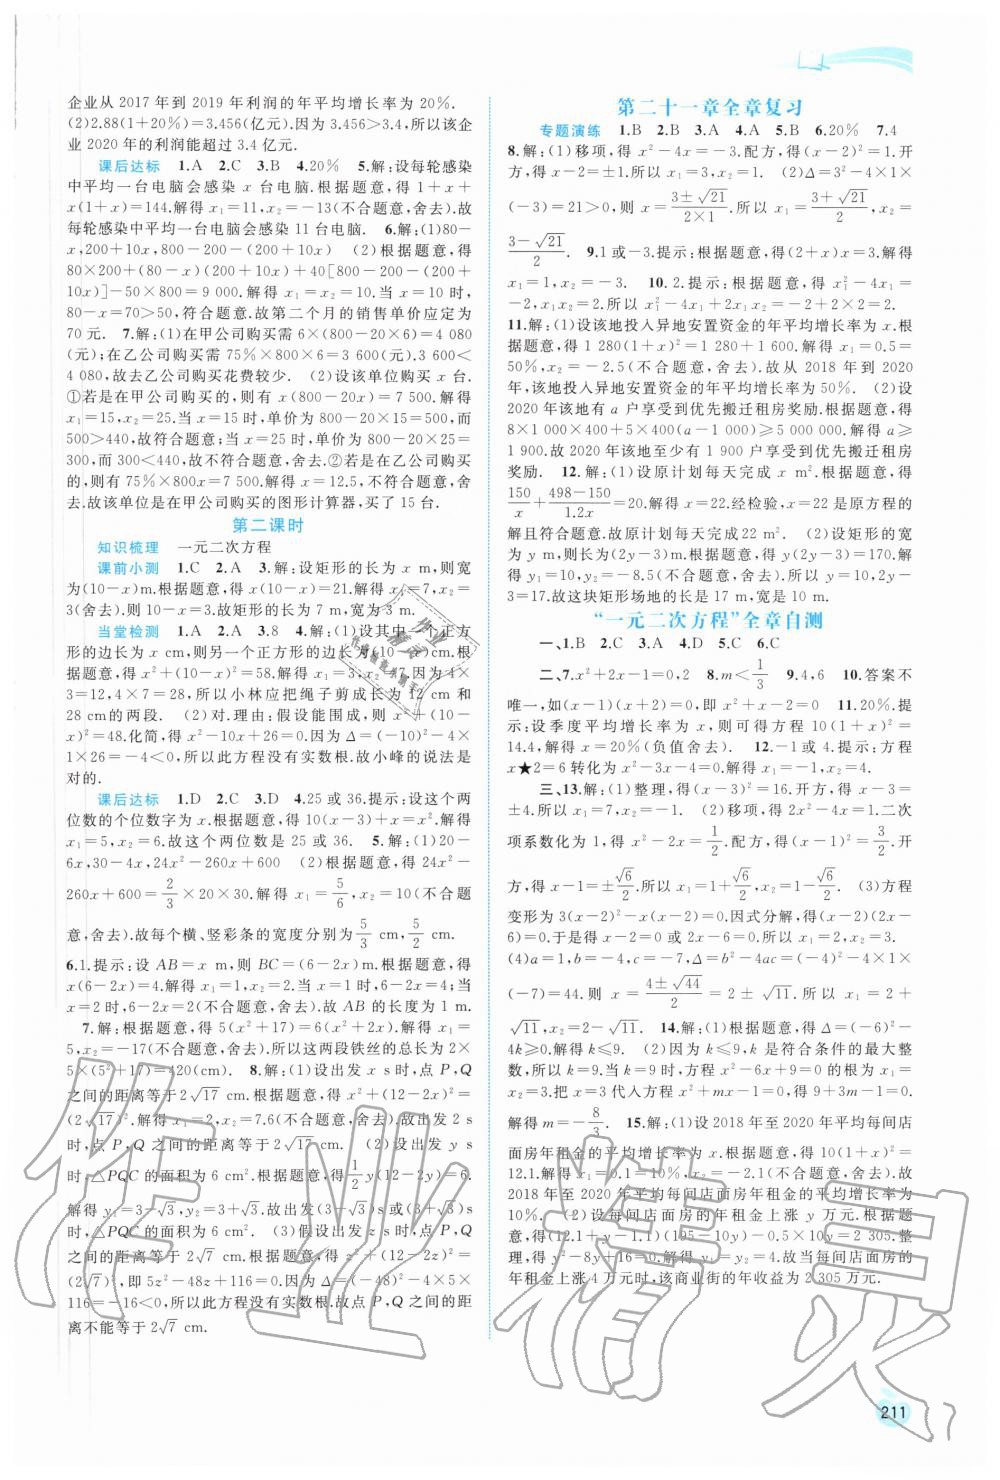 企业从 2017 年到 2019 年利润的年平均增长率为 20%.
(2)2.88(1+20%)=3.456(亿元).因为 3.456>3.4,所以该企
业 2020 年的利润能超过 3.4 亿元.
课后达标 1.A 2.C 3.B 4.20% 5.解:设每轮感染
中平均一台电脑会感染 x 台电脑.根据题意,得 1+x+
x(1+x)=144.解得 x₁=11,x₂=-13(不合题意,舍去).故
每轮感染中平均一台电脑会感染 11 台电脑. 6.解:(1)80-
x,200+10x,800-200-(200+10x) (2)根据题意,得
80×200+(80-x)(200+10x)+40[800-200-(200+
10x)]-50×800=9 000.解得 x₁=x₂=10.当 x=10 时,
80-x=70>50,符合题意.故第二个月的销售单价应定为
70 元. 7.解:(1)在甲公司购买需 6×(800-20×6)=4 080
(元);在乙公司购买需 75%×800×6=3 600(元).3 600<
4 080,故去乙公司购买花费较少. (2)设该单位购买 x 台.
①若是在甲公司购买的,则有 x(800-20x)=7 500.解得
x₁=15,x₂=25.当 x=15 时,单价为 800-20×15=500,而
500>440,故符合题意;当 x=25 时,单价为 800-20×25=
300,而 300<440,故不符合题意,舍去.②若是在乙公司购
买的,则有 75%×800x=7 500.解得 x=12.5,不符合题意,舍
去.故该单位是在甲公司购买的图形计算器,买了 15 台.
第二课时
知识梳理 一元二次方程
课前小测 1.C 2.A 3.解:设矩形的长为 x m,则宽
为(10-x)m.根据题意,得 x(10-x)=21.解得 x₁=7,x₂=
3(舍去).故 10-x=3.故矩形的长为 7 m,宽为 3 m.
当堂检测 1.A 2.A 3.8 4.解:(1)设其中一个正方
形的边长为 x cm,则另一个正方形的边长为(10-x)cm.根
据题意,得 x²+(10-x)²=58.解得 x₁=3,x₂=7.故 4×
3=12,4×7=28,所以小林应把绳子剪成长为 12 cm 和
28 cm的两段. (2)对.理由:假设能围成,故 x²+(10-
x)²=48.化简,得 x²-10x+26=0.因为 Δ=(-10)²-4×
1×26=-4<0,所以此方程没有实数根.故小峰的说法是
对的.
课后达标 1.D 2.C 3.D 4.25 或 36.提示:设这个两
位数的个位数字为 x.根据题意,得 10(x-3)+x=x².解得
x₁=5,x₂=6.故这个两位数是 25 或 36. 5.解:(1)20-
6x,30-4x,24x²-260x+600 (2)根据题意,得 24x²-
260x+600=2/3×20×30.解得 x₁=5/6,x₂=10(不合题
意,舍去).故每个横、竖彩条的宽度分别为 5/3 cm,5/2 cm.
6.1.提示:设 AB=x m,则 BC=(6-2x)m.根据题意,得
x(6-2x)=4.解得 x₁=1,x₂=2.当 x=1 时,6-2x=4;当
x=2 时,6-2x=2(不合题意,舍去).故 AB 的长度为 1 m.
7.解:根据题意,得 5(x²+17)=6(x²+2x).解得 x₁=
5,x₂=-17(不合题意,舍去).所以这两段铁丝的总长为 2×
5×(5²+17)=420(cm). 8.解:(1)设出发 x s时,点 P,Q
之间的距离等于 2√17 cm.根据题意,得 x²+(12-2x)²=
(2√17)².解得 x₁=2,x₂=7.6(不合题意,舍去).故出发 2 s
时,点 P,Q 之间的距离等于 2√17 cm. (2)设出发 y s
时,△PQC 的面积为 6 cm².根据题意,得 1/2 y(12-2y)=6.
解得 y₁=3-√3,y₂=3+√3.故出发(3-√3)s或(3+√3)s
时,△PQC 的面积为 6 cm². (3)假设出发 z s时,点 P,Q
之间的距离等于 2√7 cm.根据题意,得 z²+(12-2z)²=
(2√7)²,即 5z²-48z+116=0.因为 Δ=(-48)²-4×5×
116=-16<0,所以此方程没有实数根.故点 P,Q 之间的距
离不能等于 2√7 cm.
第二十一章全章复习
专题演练 1.B 2.B 3.A 4.A 5.B 6.20% 7.4
8.解:(1)移项,得 x²-4x=-3.配方,得(x-2)²=1.开
方,得 x-2=±1.所以 x₁=3,x₂=1. (2)Δ=3²-4×1×
(-3)=21>0,则 x=(3±√21)/(2×1).所以 x₁=(3+√21)/2,x₂=
(3-√21)/2. 9.1 或-3.提示:根据题意,得(2+x)·x=3.解得
x₁=1,x₂=-3. 10.2.提示:根据题意,得 x₁²-4x₁=
-2,x₁x₂=2.所以 x₁²-4x₁+2x₁x₂=-2+2×2=2.
11.解:(1)设该地投入异地安置资金的年平均增长率为 x.根
据题意,得 1 280(1+x)²=1 280+1 600.解得 x₁=0.5=
50%,x₂=-2.5(不合题意,舍去).故从 2018 年到 2020
年,该地投入异地安置资金的年平均增长率为 50%. (2)设
2020 年该地有 a 户享受到优先搬迁租房奖励.根据题意,得
8×1 000×400+5×400(a-1 000)≥5 000 000.解得 a≥
1 900.故 2020 年该地至少有 1 900 户享受到优先搬迁租房
奖励. 12.解:(1)设原计划每天完成 x m².根据题意,得
150/x+(498-150)/1.2x=20.解得 x=22.经检验,x=22 是原方程的
解且符合题意.故原计划每天完成 22 m². (2)设矩形的宽
为 y m,则长为(2y-3)m.根据题意,得 y(2y-3)=170.解得
y₁=10,y₂=-8.5(不合题意,舍去).所以 2y-3=2×10-3=
17.故这块矩形场地的长是 17 m,宽是 10 m.
“一元二次方程”全章自测
一、1.B 2.C 3.A 4.D 5.C 6.C
二、7.x²+2x-1=0,2 8.m<1/3 9.4,6 10.答案不
唯一,如(x-1)(x+2)=0,即 x²+x-2=0 11.20%.提
示:设季度平均增长率为 x,则可得方程 10(1+x)²=
14.4,解得 x=20%(负值舍去). 12.-1 或 4.提示:方程
x★2=6 转化为 x²-3x+2=6.解得 x₁=-1,x₂=4.
三、13.解:(1)整理,得(x-3)²=16.开方,得 x-3=
±4.所以 x₁=7,x₂=-1. (2)移项,得 2x²-4x=1.二次
项系数化为 1,得 x²-2x=1/2.配方,得(x-1)²=3/2.开
方,得 x-1=±√6/2.所以 x₁=1+√6/2,x₂=1-√6/2. (3)方程
变形为 3(x-2)²-x(x-2)=0.因式分解,得(x-2)(2x-
6)=0.于是得 x-2=0 或 2x-6=0.所以 x₁=2,x₂=3.
(4)a=1,b=-4,c=-7,Δ=b²-4ac=(-4)²-4×1×
(-7)=44.则 x=(4±√44)/2=2±√11.所以 x₁=2+
√11,x₂=2-√11. 14.解:(1)根据题意,得 Δ=(-6)²-
4k≥0.解得 k≤9. (2)因为 k≤9,k 是符合条件的最大整
数,所以 k=9.当 k=9 时,方程 x²-6x+9=0 的根为 x₁=
x₂=3.把 x=3 代入方程 x²+mx-1=0,得 9+3m-1=0.
解得 m=-8/3. 15.解:(1)设 2018 年至 2020 年平均每间店
面房年租金的平均增长率为 x.根据题意,得 10(1+x)²=
12.1.解得 x₁=0.1=10%,x₂=-2.1(不合题意,舍去).故
2018 年至 2020 年平均每间店面房年租金的平均增长率为
10%. (2)设每间店面房的年租金上涨 y 万元.根据题
意,得(12.1+y-1.1)(195-10y)-0.5×10y=2 305.整
理,得 y²-8y+16=0.解得 y₁=y₂=4.故当每间店面房的
年租金上涨 4 万元时,该商业街的年收益为 2 305 万元.
211
作业精灵